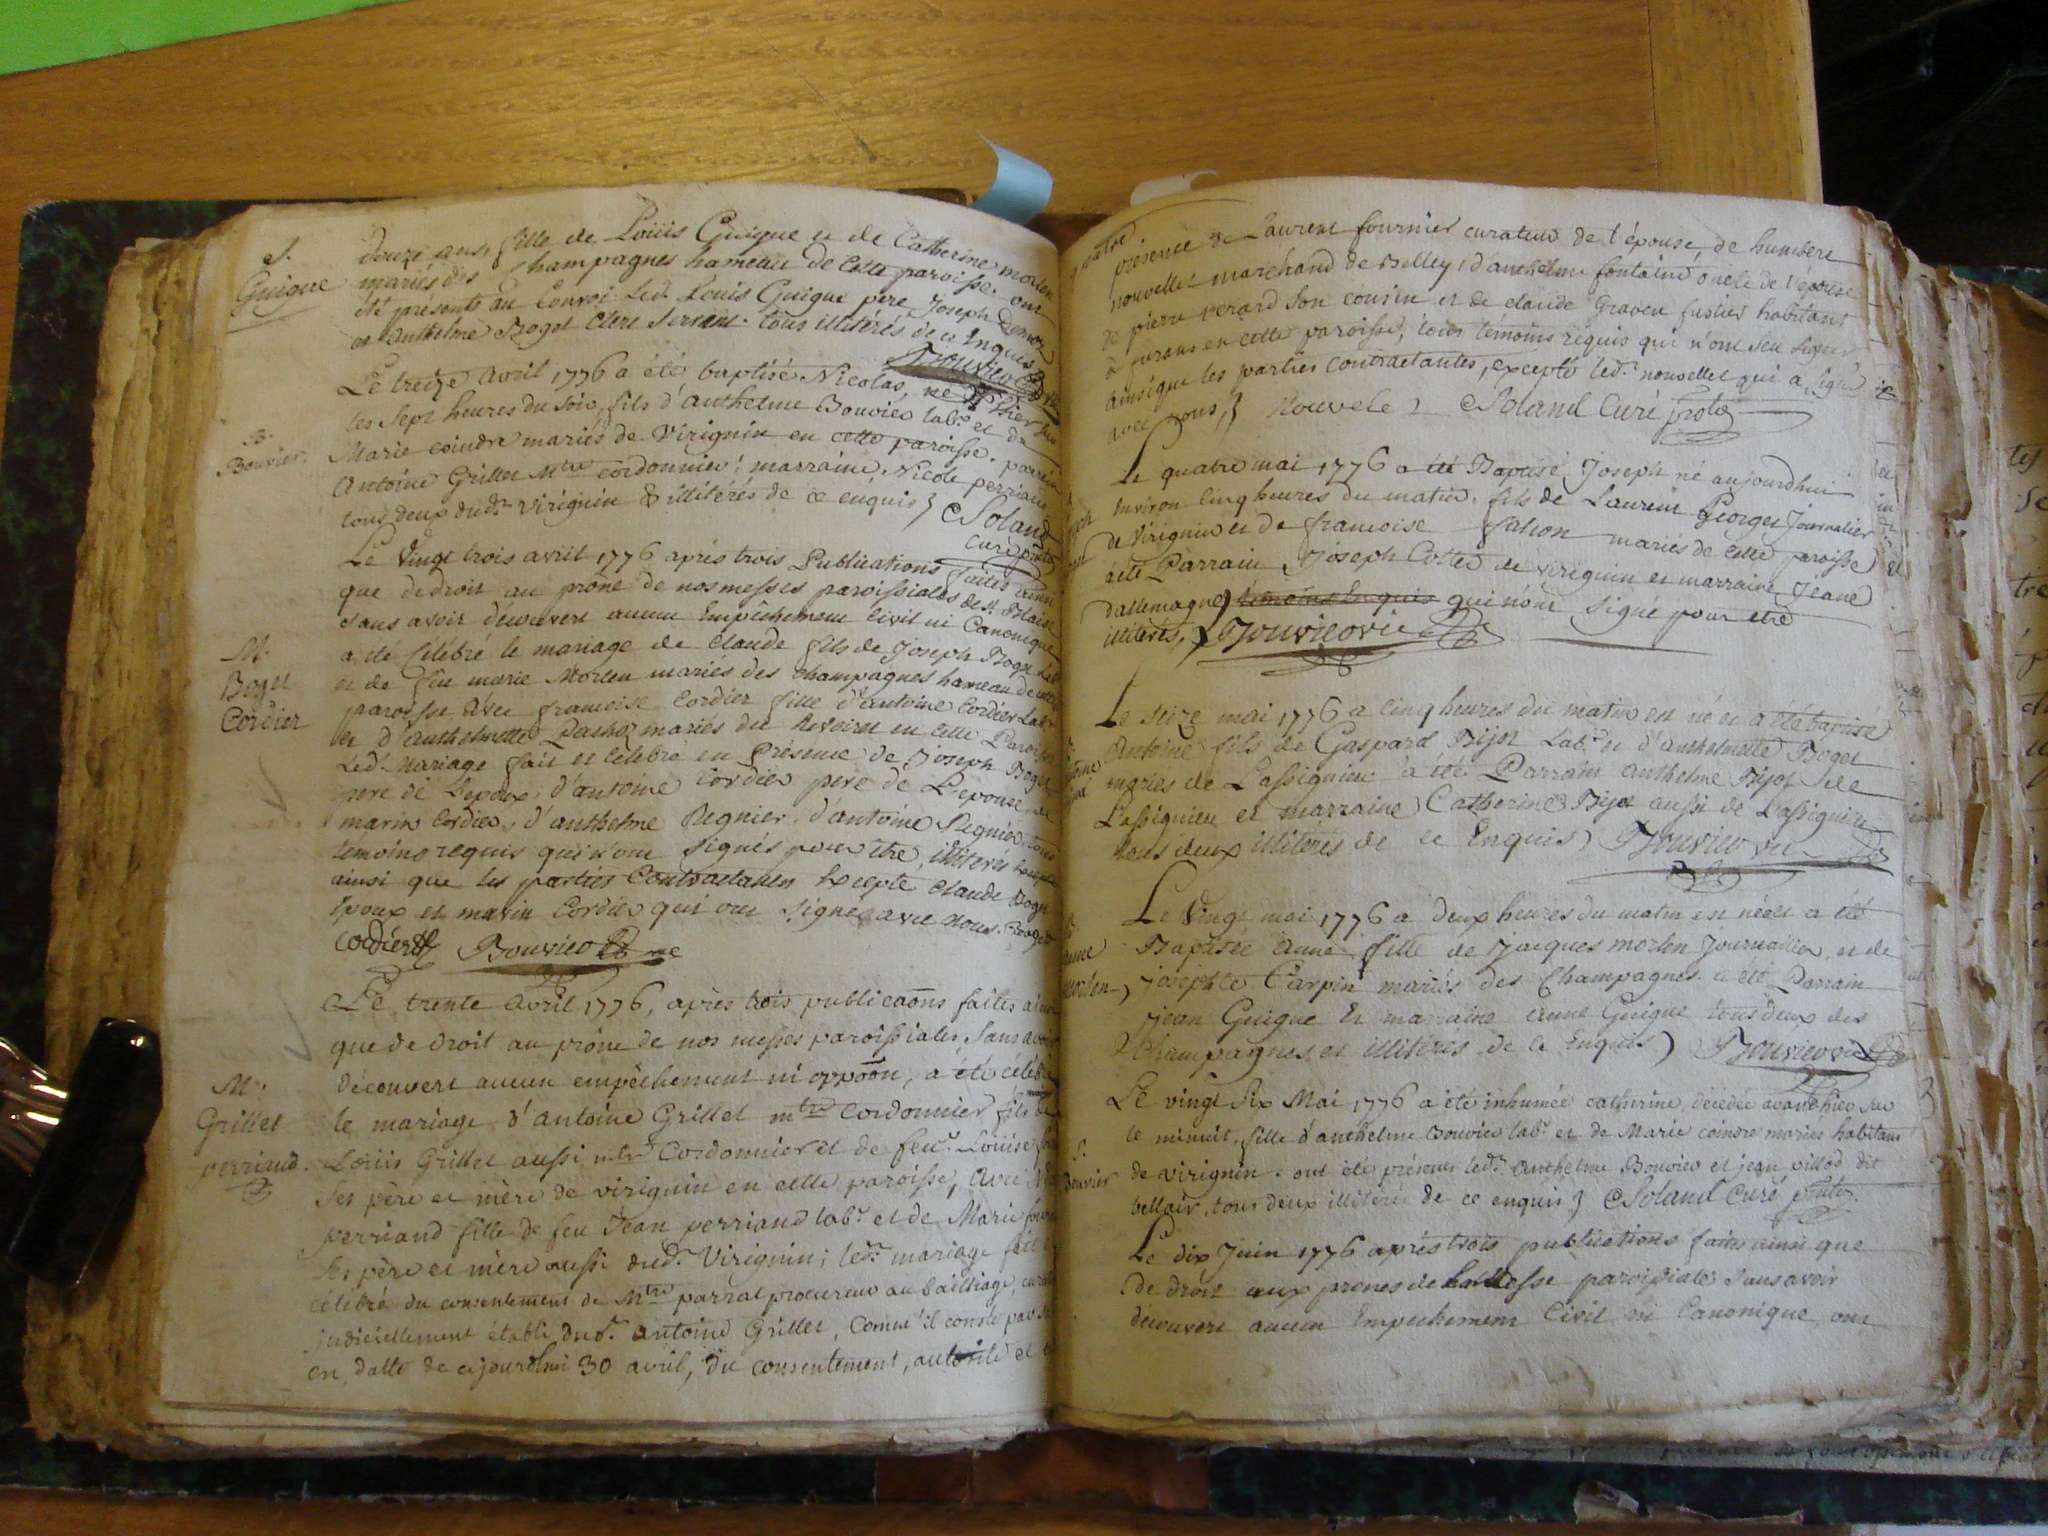 S.
Guigue
douze ans, fille de Loüis Guigue et de Catherine morten
mariés des Champagnes hameau de cette paroisse. ont
été présents au Convoi led. Louis Guigue pere Joseph
et Anthelme Boget Clerc Servant. tous illitérés de ce Enquis
Bouvier
B.
Bouvier.
Le treize avril 1776 a été baptisé Nicolas, né hier sur
les sept heures du soir, fils d'anthelme Bouvier labr. et de
Marie coindre mariés de Virignin en cette paroisse. parrein
Antoine Grillet mtre cordonnier; marraine, Nicole perriand
tous deux dudt. virignin & illitérés de ce enquis } Soland
curé
Le Vingt trois avril 1776 aprés trois Publications faites ainsi
que de droit au prône de nos messes paroissiales de st. Blaise
sans avoir découvert aucun Empêchement Civil ni Canonique
M.
Boget
Cordier
a été Célébré le mariage de Claude fils de Joseph Boget Lab
et de feu marie Morten mariés des Champagnes hameau de cette
paroisse avec francoise Cordier fille d'antoine Cordier Labr
et d'Anthelmette mariés du en cette Paroisse
Led. Mariage fait et Célébré en Présence de Joseph Boget
pere de L'epoux, d'antoine Cordier pere de L'epouse, de
marin Cordier, d'anthelme Regnier, d'antoine Regnier, tous
temoins requis qui n'ont signés pour être illiterés
ainsi que les parties Contractantes Excepté Claude Boget
Epoux et marin Cordier qui ont signé avec nous. Boget
Cordier Bouvier
Le trente avril 1776, après trois publicaõns faites ainsi
que de droit au prône de nos messes paroissiales, sans avoir
découvert aucun empêchement ni oppoõn, a été célébré
M.
Grillet
perriand.
le mariage d'Antoine Grillet mtre Cordonnier, fils
Loüis Grillet aussi mtre Cordonnier et de feue. Loüise
ses père et mère de virignin en cette paroisse, avec
perriand fille de feu Jean perriand labr. et de Marie
ses père et mère aussi dudt. Virignin; ledt. mariage fait
célébré du consentement de Mtre parrat procureur au bailliage,
judiciellement établi dudt. Antoine Grillet, comme il conste par
en datte de cejourdhui 30 avril, du consentement, autorité et
présence de Laurent fournier curateur de l'épouse, de humbert
nouvellet marchand de Belley, d'anthelme fontaine oncle de l'épouse
de pierre verard son cousin et de claude Graven fustier habitant
à en cette paroisse, tous témoins requis qui n'ont seu signer
ainsique les parties contractantes, excepté ledt. nouvellet qui a signé
avec nous, } Nouvele Soland Curé
Le quatre mai 1776 a été Baptisé Joseph né aujourdhui
environ Cinq heures du matin. fils de Laurent Georges Journalier
de Virignin et de francoise mariés de cette paroisse
a été Parrain Joseph Cotter de virignin et marraine Jéane
dallemagne témoins Enquis qui n'ont signe pour etre
illiterés, Bouvier
Le seize mai 1776 a Cinq heures du matin est né et a été baptisé
Antoine fils de Gaspard Bijot Labr. et d'anthelmette Boget
mariés de Lassignieu a été Parrain anthelme Bijot de
Lassignieu et marraine Catherine Bijot aussi de Lassignieu
tous deux illiterés de ce Enquis Bouvier
anne
morten
Le Vingt mai 1776 a deux heures du matin est née et a été
Baptisée anne fille de Jacques morten Journalier, et de
josephte Carpin mariés des Champagnes a été Parrain
Jean Guigue Et marraine anne Guigue tous deux des
Champagnes et illiterés de ce Enquis Bouvier
S.
bouvier
Le vingt Six Mai 1776 a été inhumée catherine, décedée avant hier sur
le minuit, fille d'anthelme Bouvier labr. et de Marie coindre mariés habitans
de virignin. ont été présens ledt. Anthelme Bouvier et jean villod dit
bellair, tous deux illitérés de ce enquis } Soland Curé
Le dix Juin 1776 aprés trois publications faites ainsi que
de droit aux prones de messe paroissiales sans avoir
découvert aucun Empechement Civil ni Canonique, ont